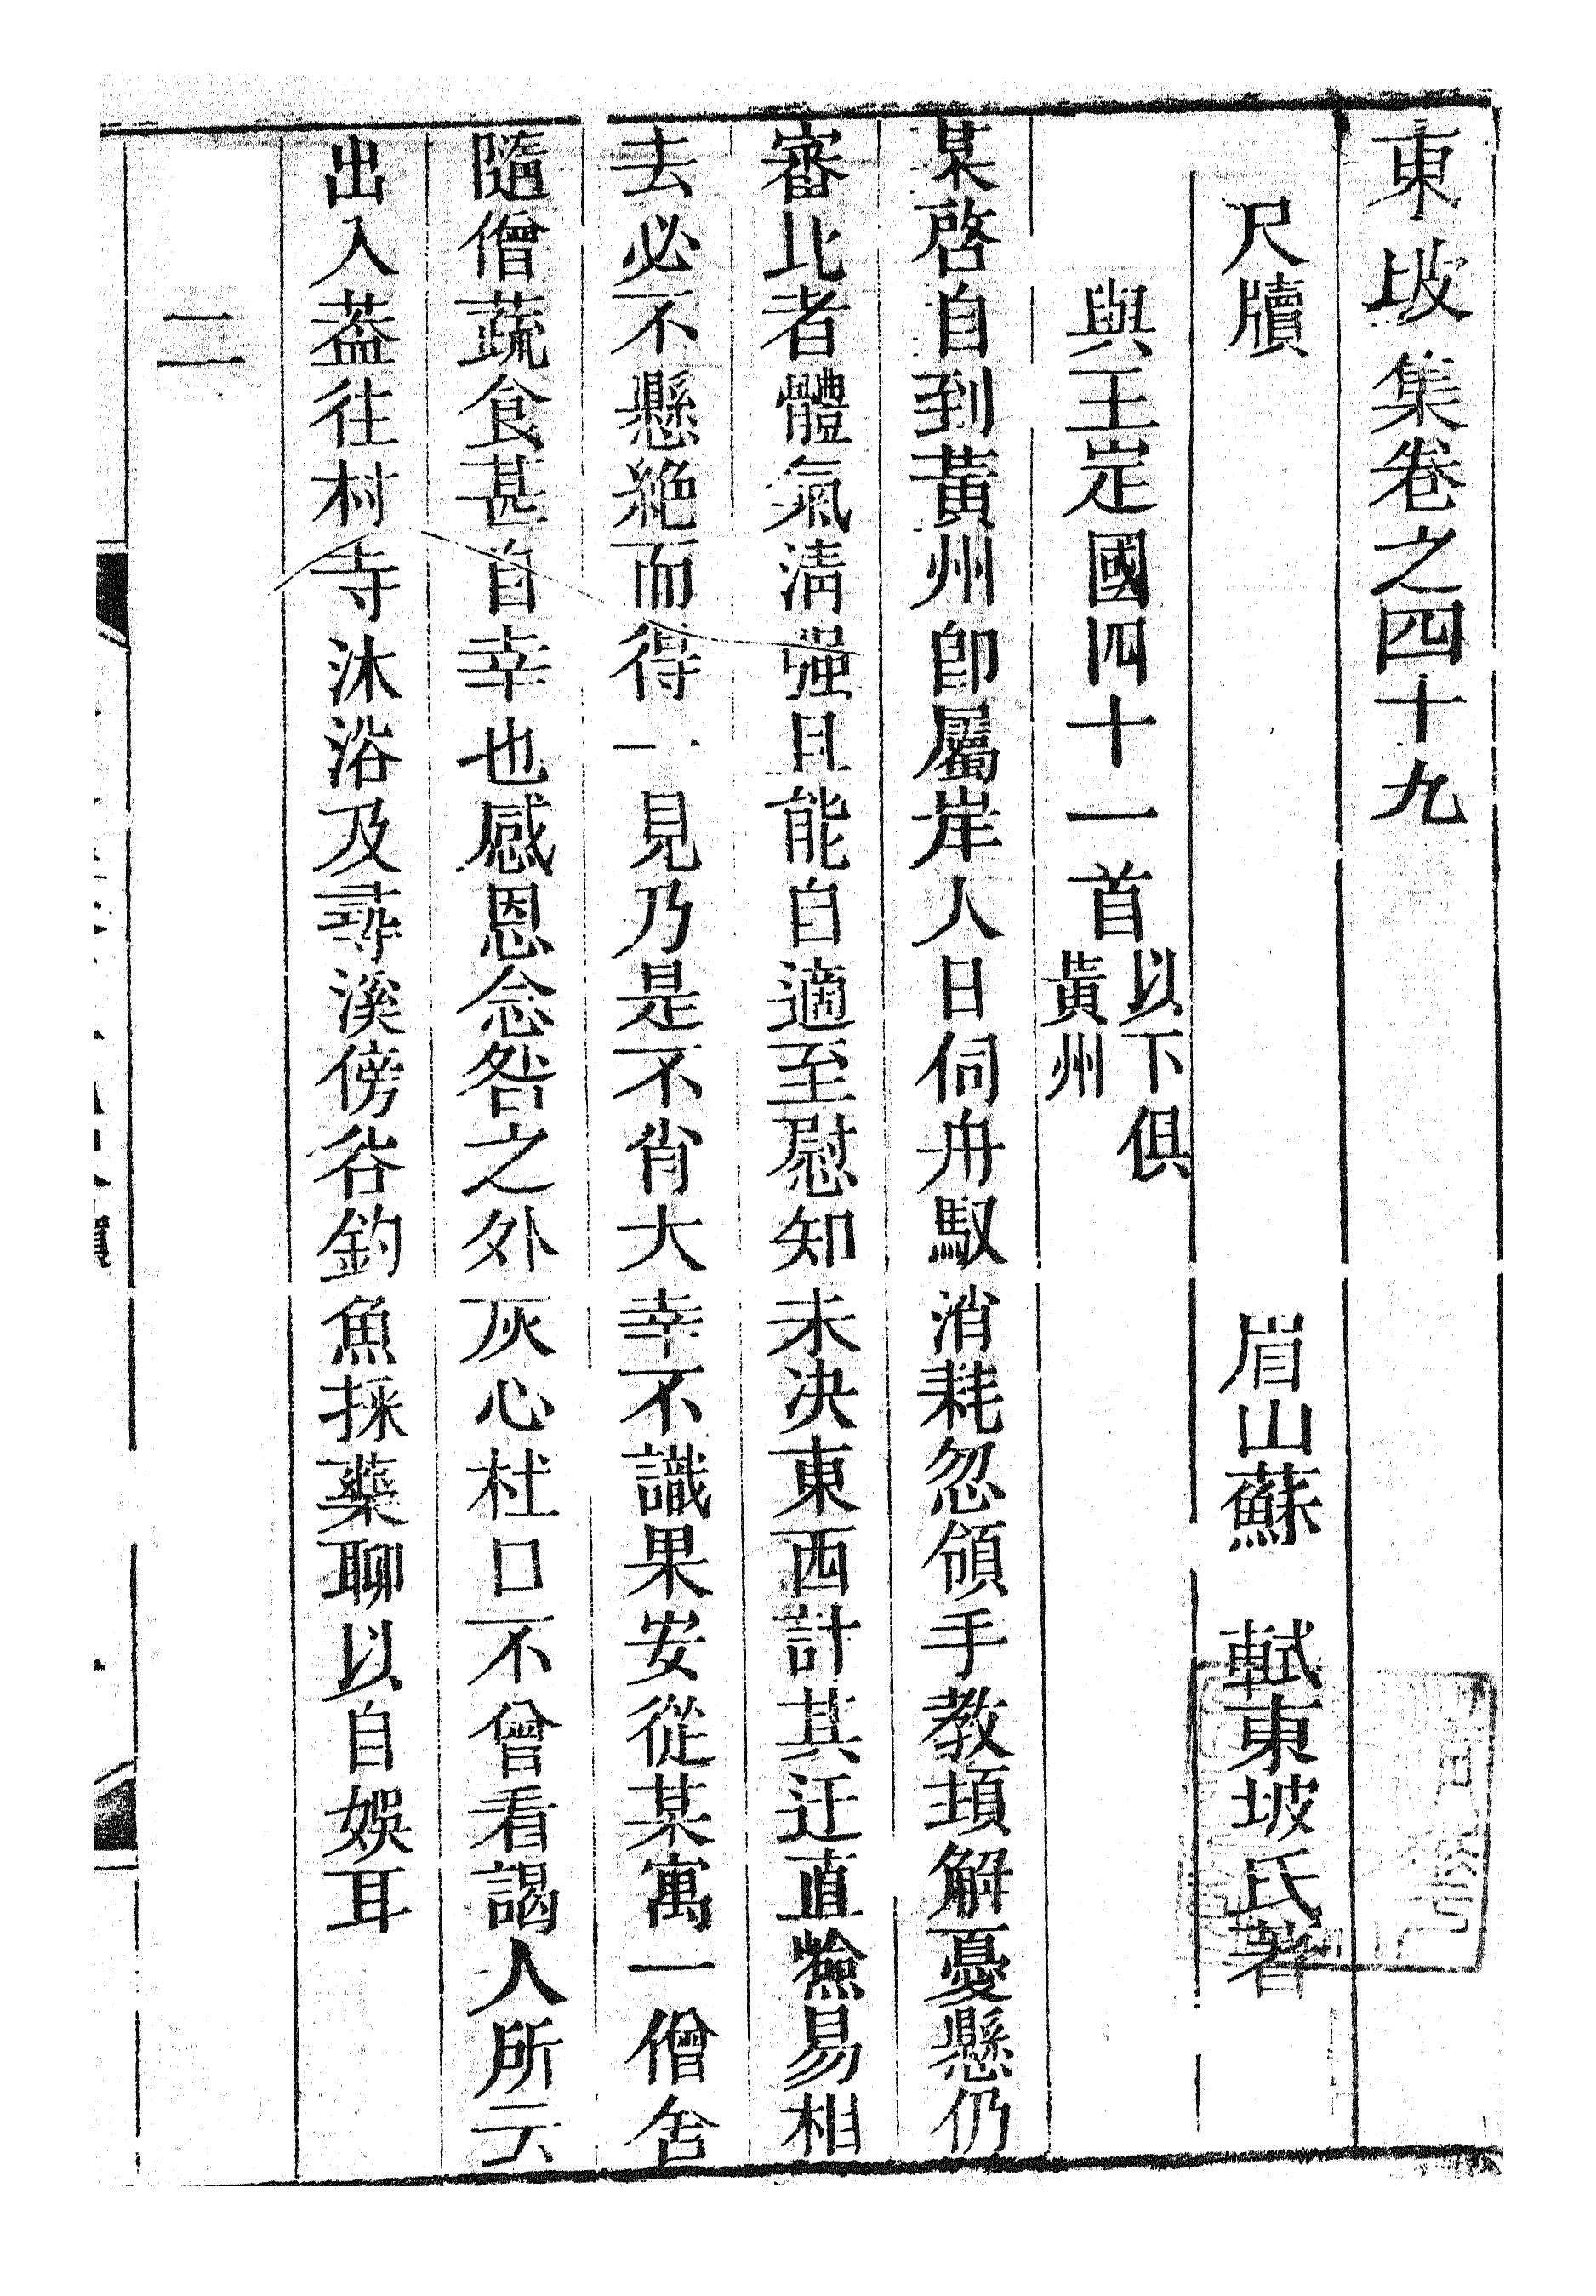 東坡集卷之四十九
尺牘 眉山蘇 軾東坡氏著
與王定國四十一首以下俱黃州
某啓自到黃州卽屬岸人日伺舟馭消耗忽領手教頓解憂懸仍
審比者體氣淸强且能自適至慰知未决東西計其迂直險易相
去必不懸絶而得一見乃是不肖大幸不識果安從某寓一僧舍
隨僧蔬食甚自幸也感恩念咎之外灰心杜口不曾看謁人所云
出入葢往村寺沐浴及尋溪傍谷釣魚採藥聊以自娛耳
二